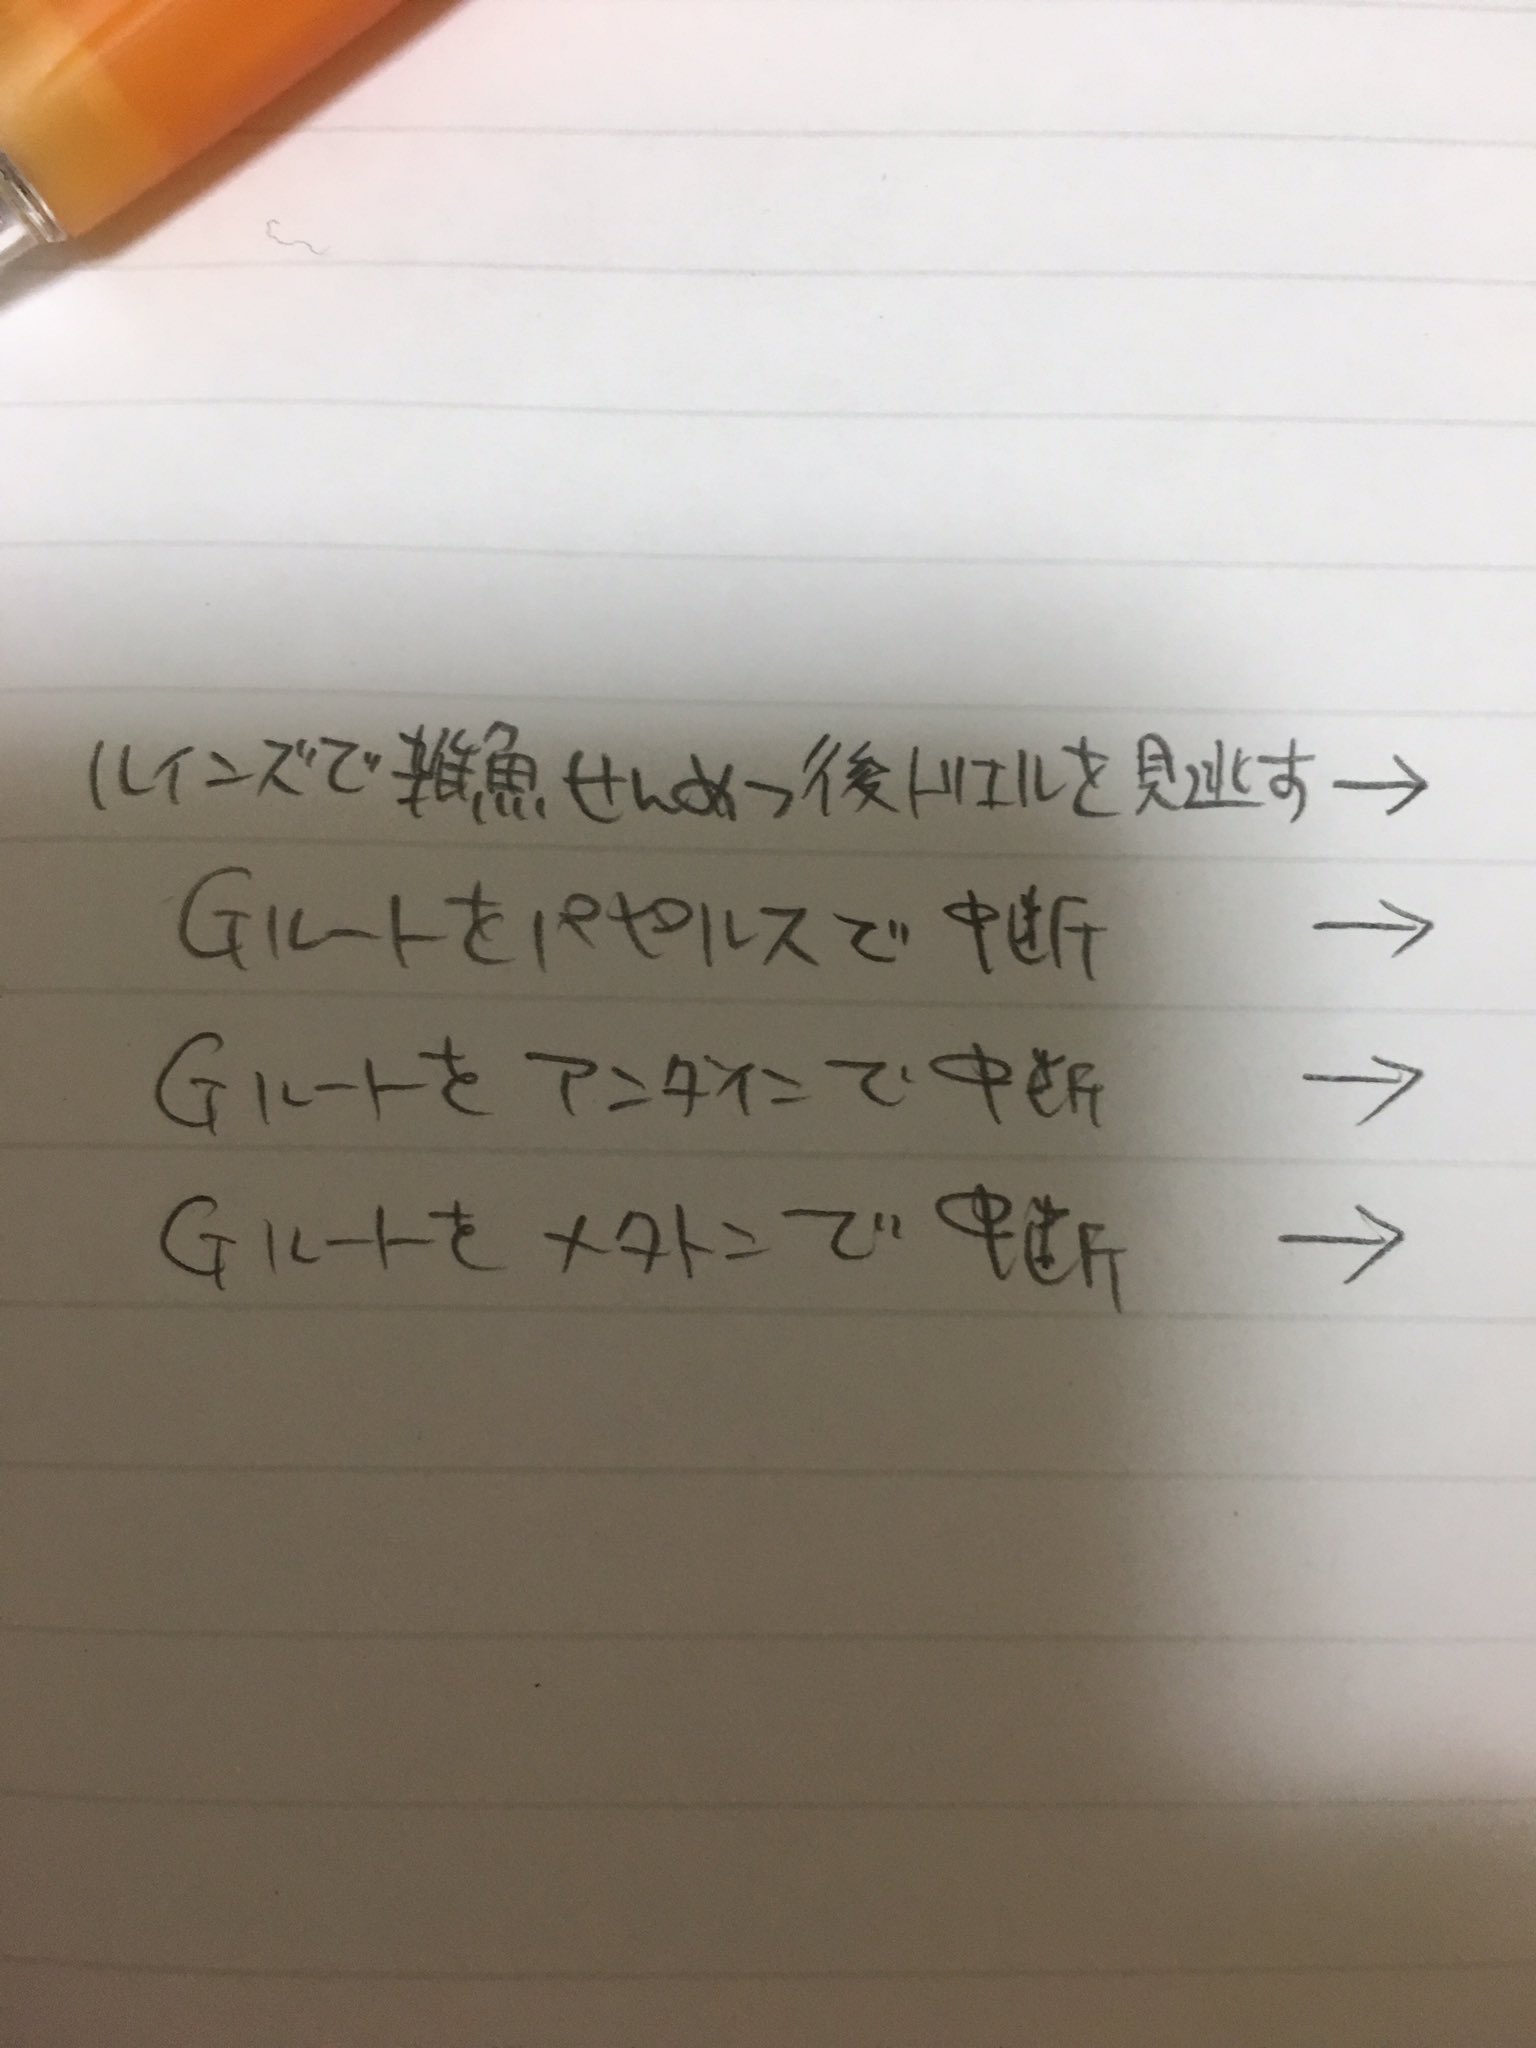 ルインズで雑魚せんめつ後トリエルを見逃す→
Gルートをパピルスで中断 →
Gルートをアンダインで中断 →
Gルートをメタトンで中断 →